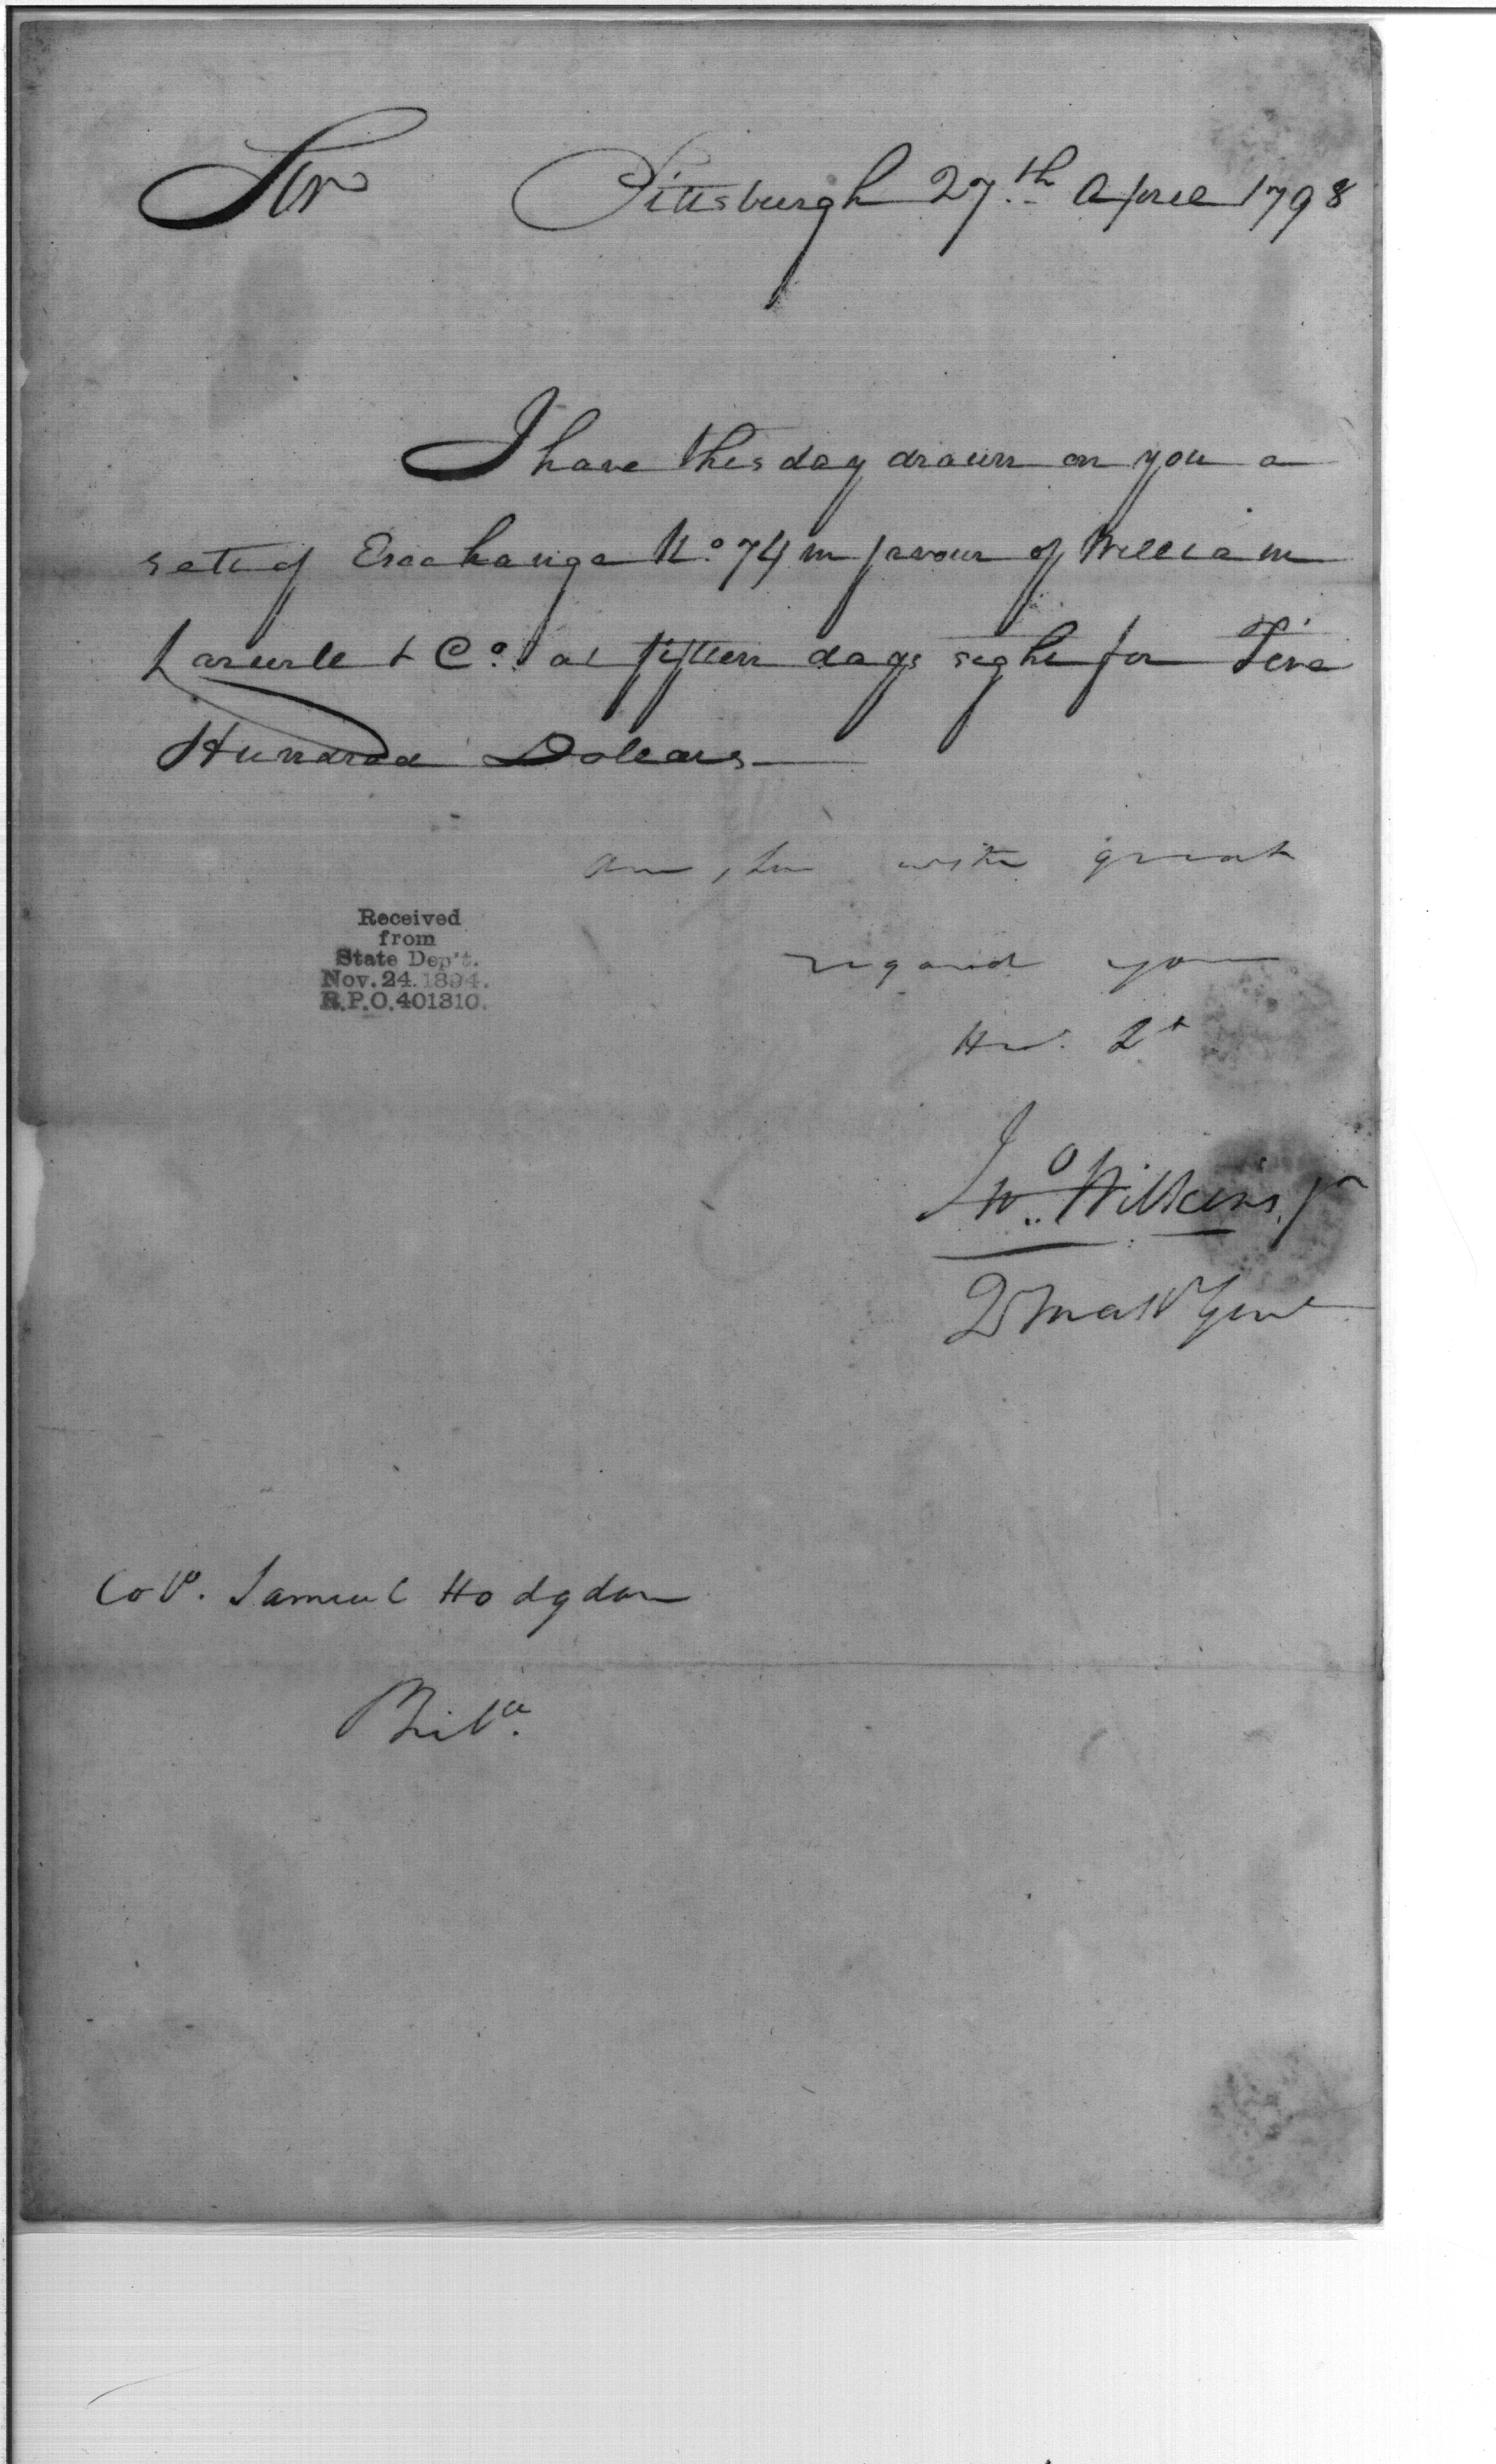 Sir Pittsburgh 27.th April 1798
I have this day drawn on you a
sett of Exchange No. 74 in favour of William
& Co. at fifteen days sight for Five
Hundred Dollars
am, Sir with great
regard your
Hu. St
Jno. Wilkins, Jr
QrMastr Genl
Received
from
State Dep't.
Nov. 24. 1894.
R.P.O. 401310.
Colo. Samuel Hodgdon
Phila.